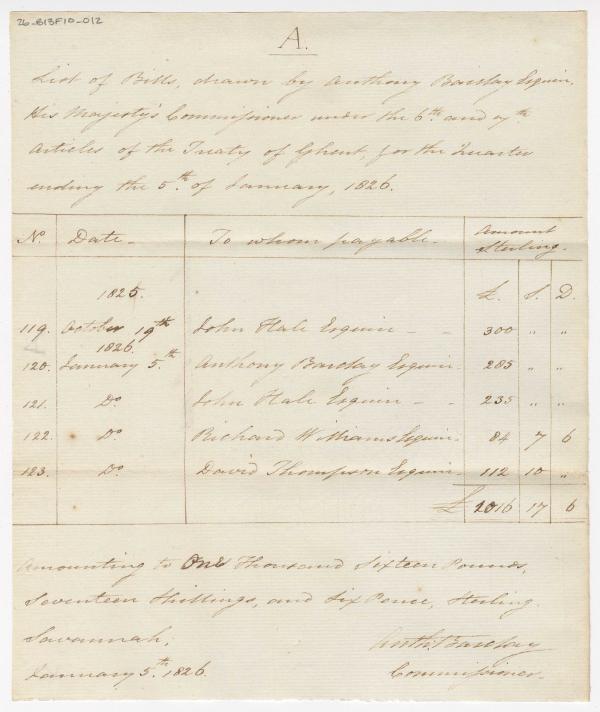 26-B13F10-012
A.
List of Bills, drawn by Anthony Barclay Esquire,
His Majesty's Commissioner under the 6th. and 7th.
Articles of the Treaty of Ghent, for the Quarter
ending the 5th. of January, 1826.
No. Date To whom payable. Amount
Sterling.
1825. £. S. D.
119. October 19th John Hale Esquire 300 " "
1826.
120. January 5th. Anthony Barclay Esquire. 285 " "
121. Do John Hale Esquire 235 " "
122. Do. Richard Williams Esquire. 84 7 6
123. Do David Thompson Esquire 112 10 "
£ 1016 17 6
Amounting to One Thousand Sixteen Pounds,
Seventeen Shillings, and Six Pence, Sterling.
Savannah,
January 5th. 1826.
Anth: Barclay
Commissioner.